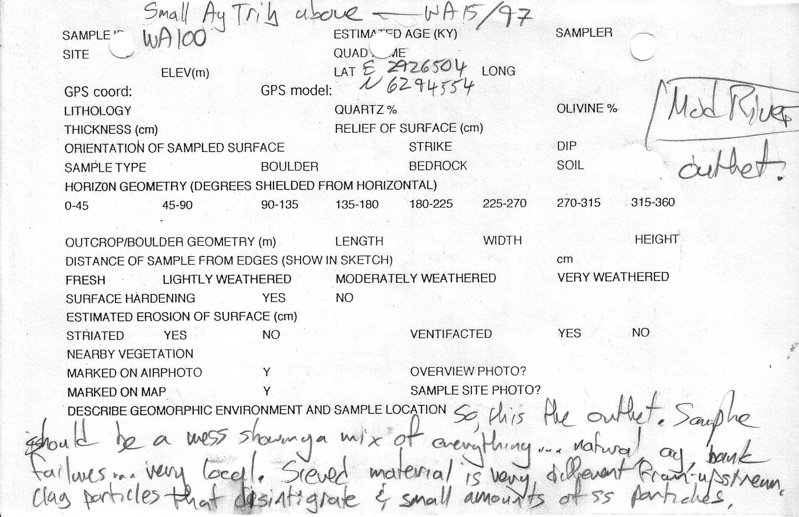 Small Ag Trib above — WA15/97
SAMPLE ID WA100 ESTIMATED AGE (KY) SAMPLER
SITE QUAD NAME
ELEV(m) LAT E 2926504 LONG
GPS coord: GPS model: N 6294554
Mad River
outlet.
LITHOLOGY QUARTZ % OLIVINE %
THICKNESS (cm) RELIEF OF SURFACE (cm)
ORIENTATION OF SAMPLED SURFACE STRIKE DIP
SAMPLE TYPE BOULDER BEDROCK SOIL
HORIZ0N GEOMETRY (DEGREES SHIELDED FROM HORIZONTAL)
0-45 45-90 90-135 135-180 180-225 225-270 270-315 315-360
OUTCROP/BOULDER GEOMETRY (m) LENGTH WIDTH HEIGHT
DISTANCE OF SAMPLE FROM EDGES (SHOW IN SKETCH) cm
FRESH LIGHTLY WEATHERED MODERATELY WEATHERED VERY WEATHERED
SURFACE HARDENING YES NO
ESTIMATED EROSION OF SURFACE (cm)
STRIATED YES NO VENTIFACTED YES NO
NEARBY VEGETATION
MARKED ON AIRPHOTO Y OVERVIEW PHOTO?
MARKED ON MAP Y SAMPLE SITE PHOTO?
DESCRIBE GEOMORPHIC ENVIRONMENT AND SAMPLE LOCATION So, this the outlet. Sample
should be a mess showing a mix of everything... natural ag bank
failures... very local. Sieved material is very different from upstream,
clag particles that disintigrate & small amounts of ss particles.